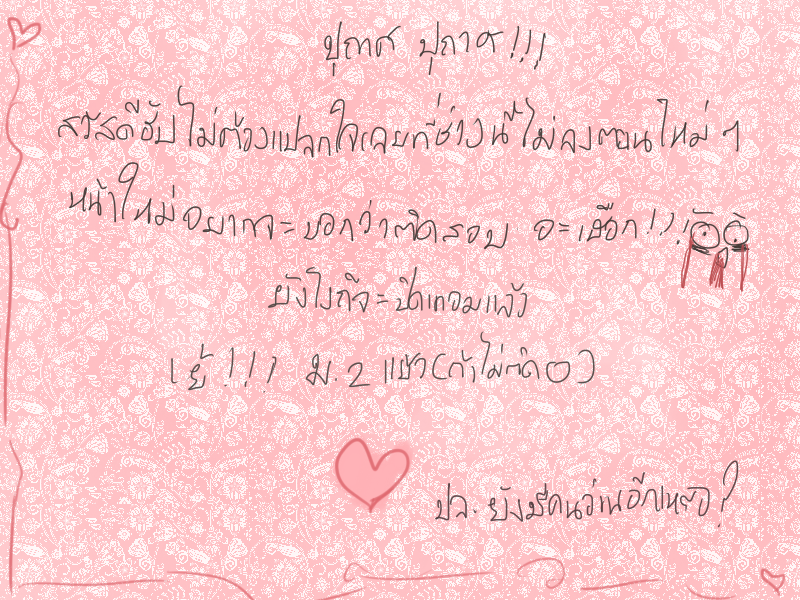 ปุกาศ ปุกาศ!!!
สวัสดีฮับ ไม่ต้องแปลกใจเลยที่ช่วงนี้ไม่ลงตอนใหม่ ๆ
หน้าใหม่ อยากจะบอกว่าติดสอบ อะเฮือก!!!
ยังไงก็จะปิดเทอมแล้ว
เย้!!! ม.2 แล้ว(ถ้าไม่ติด 0)
ปล. ยังมีคนว่างอีกเหรอ?